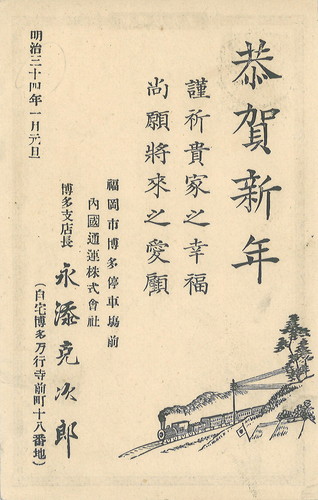 恭賀新年
謹祈貴家之幸福
尚願將來之愛顧
福岡市博多停車塲前
內國通運株式會社
博多支店長 永添克次郎
(自宅博多万行寺前町十八番地)
明治三十四年一月元旦